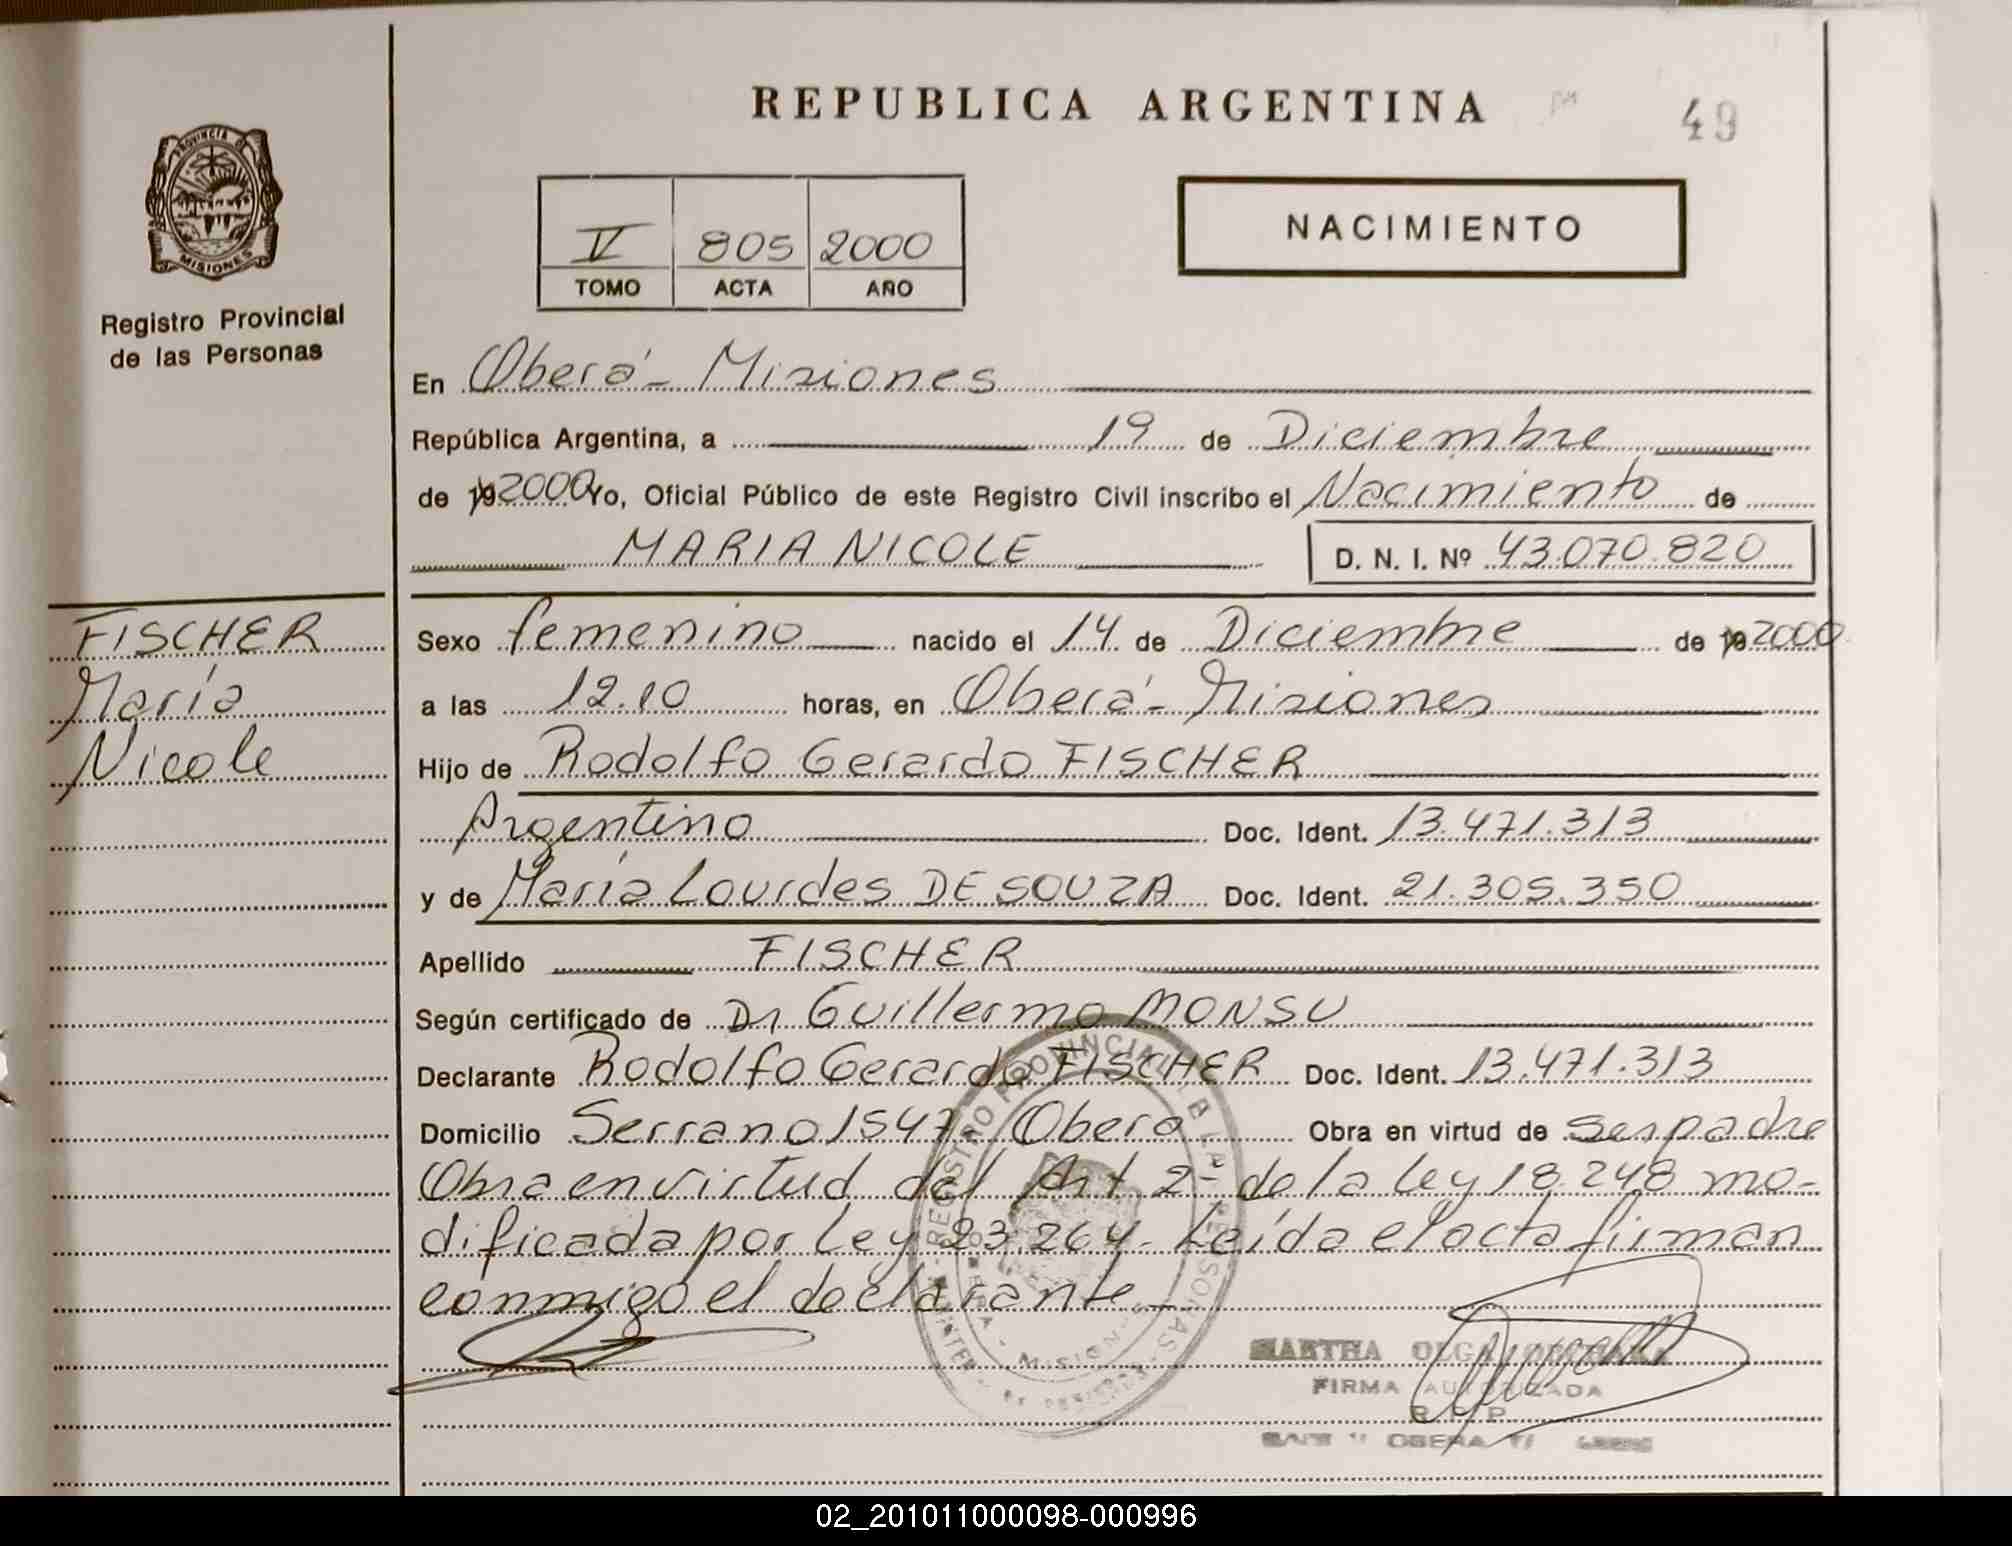 REPUBLICA ARGENTINA
49
PROVINCIA DE
MISIONES
Registro Provincial
de las Personas
V 805 2000
TOMO ACTA AÑO
NACIMIENTO
En Oberá - Misiones
República Argentina, a 19 de Diciembre
de 19 2000 Yo, Oficial Público de este Registro Civil inscribo el Nacimiento de
MARIA NICOLE D. N. I. Nº 43.070.820
FISCHER
María
Nicole
Sexo femenino nacido el 14 de Diciembre de 19 2000
a las 12.10 horas, en Oberá - Misiones
Hijo de Rodolfo Gerardo FISCHER
Argentino Doc. Ident. 13.471.313
y de María Lourdes DE SOUZA Doc. Ident. 21.305.350
Apellido FISCHER
Según certificado de Dr Guillermo MONSU
Declarante Rodolfo Gerardo FISCHER Doc. Ident. 13.471.313
Domicilio Serrano 1547 - Obera Obra en virtud de ser padre
Obra en virtud del Art 2- de la Ley 18.248 mo-
dificada por Ley 23.264. Leída el acta firman
conmigo el declarante -
REGISTRO PROVINCIAL DE LAS PERSONAS
MARTHA OLGA
FIRMA AUTORIZADA
R.P.P.
OBERA
02_201011000098-000996